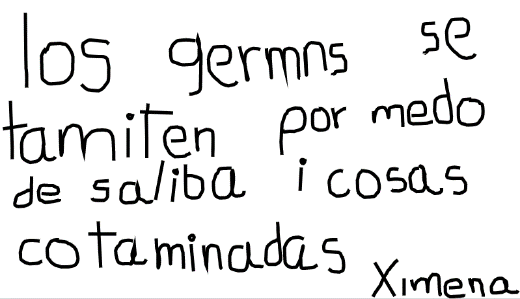 los germns se
tamiten por medo
de saliba i cosas
cotaminadas
Ximena